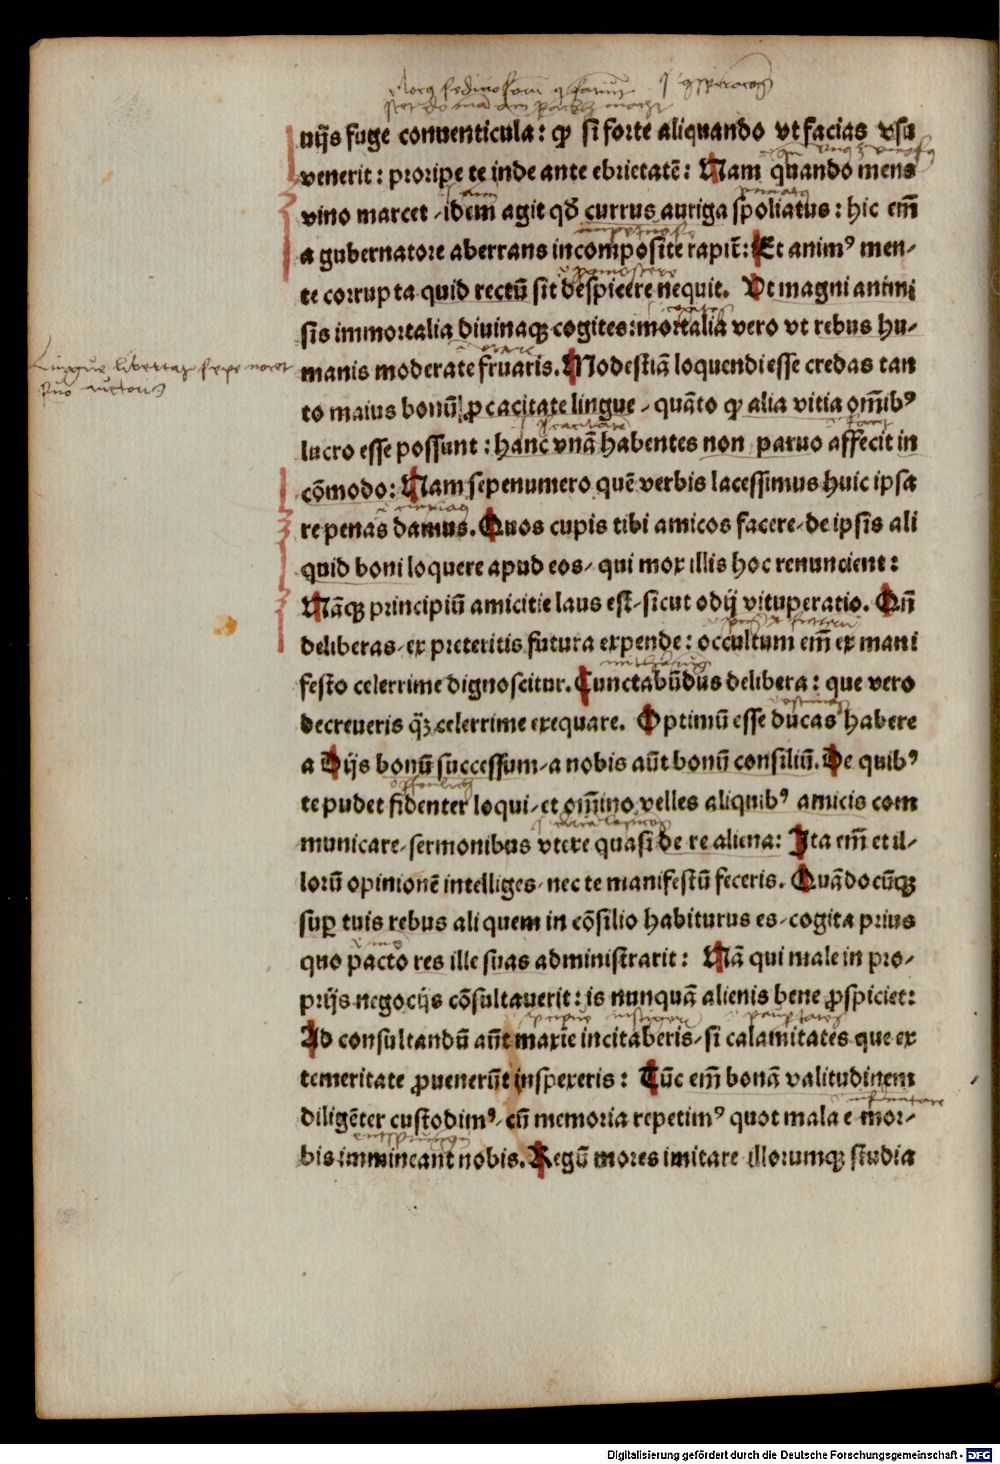 uijs fuge conuenticula: qꝙ si forte aliquando vt facias vsu
venerit: proripe te inde ante ebrietatē: Nam quando mens
vino marcet, idem agit qđ currus auriga spoliatus: hic em̄
a gubernatore aberrans incomposite rapit̄: Et animꝰ men-
te corrupta quid rectū sit despicere nequit. Vt magni animi
sis immortalia diuinaqꝫ cogites: mortalia vero vt rebus hu-
manis moderate fruaris. Modestiā loquendi esse credas tan
Lingue libertas sepe nocet
suo auctori
to maius bonū ꝓcacitate lingue, quāto ꝙ alia vitia om̄ibꝰ
lucro esse possunt: hanc vnā habentes non paruo affecit in
cōmodo: Nam sepenumero quē verbis lacessimus huic ipsa
re penas damus. Quos cupis tibi amicos facere, de ipsis ali
quid boni loquere apud eos, qui mox illis hoc renuncient:
Nāqꝫ principiū amicitie laus est, sicut odij vituperatio. Qn̄
deliberas, ex preteritis futura expende: occultum em̄ ex mani
festo celerrime dignoscitur. Cunctabūdus delibera: que vero
decreueris qꝫ̄ celerrime exequare. Optimū esse ducas habere
a Dijs bonū successum, a nobis aūt bonū consiliū. De quibꝰ
te pudet fidenter loqui, et om̄ino velles aliquibꝰ amicis com
municare, sermonibus vtere quasi de re aliena: Ita em̄ et il-
lorū opinionē intelliges, nec te manifestū feceris. Quādocūqꝫ
suꝑ tuis rebus aliquem in cōsilio habiturus es, cogita prius
quo pacto res ille suas administrarit: Nā qui male in pro-
prijs negocijs cōsultauerit: is nunquā alienis bene ꝓspiciet:
Ad consultandū aūt maxīe incitaberis, si calamitates que ex
temeritate ꝓuenerūt inspexeris: Tūc em̄ bonā valitudinem
diligēter custodimꝰ, cū memoria repetimꝰ quot mala e mor-
bis immineant nobis. Regū mores imitare illorumqꝫ studia
Digitalisierung gefördert durch die Deutsche Forschungsgemeinschaft - DFG